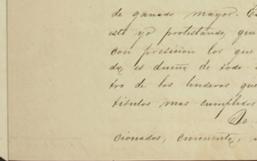 de ganado mayor. E
esto yo protestando, que
con presicion los que
da, es dueño de todo
tro de los linderos que
titulos mas cumplidos
De
cionados, cincuenta,